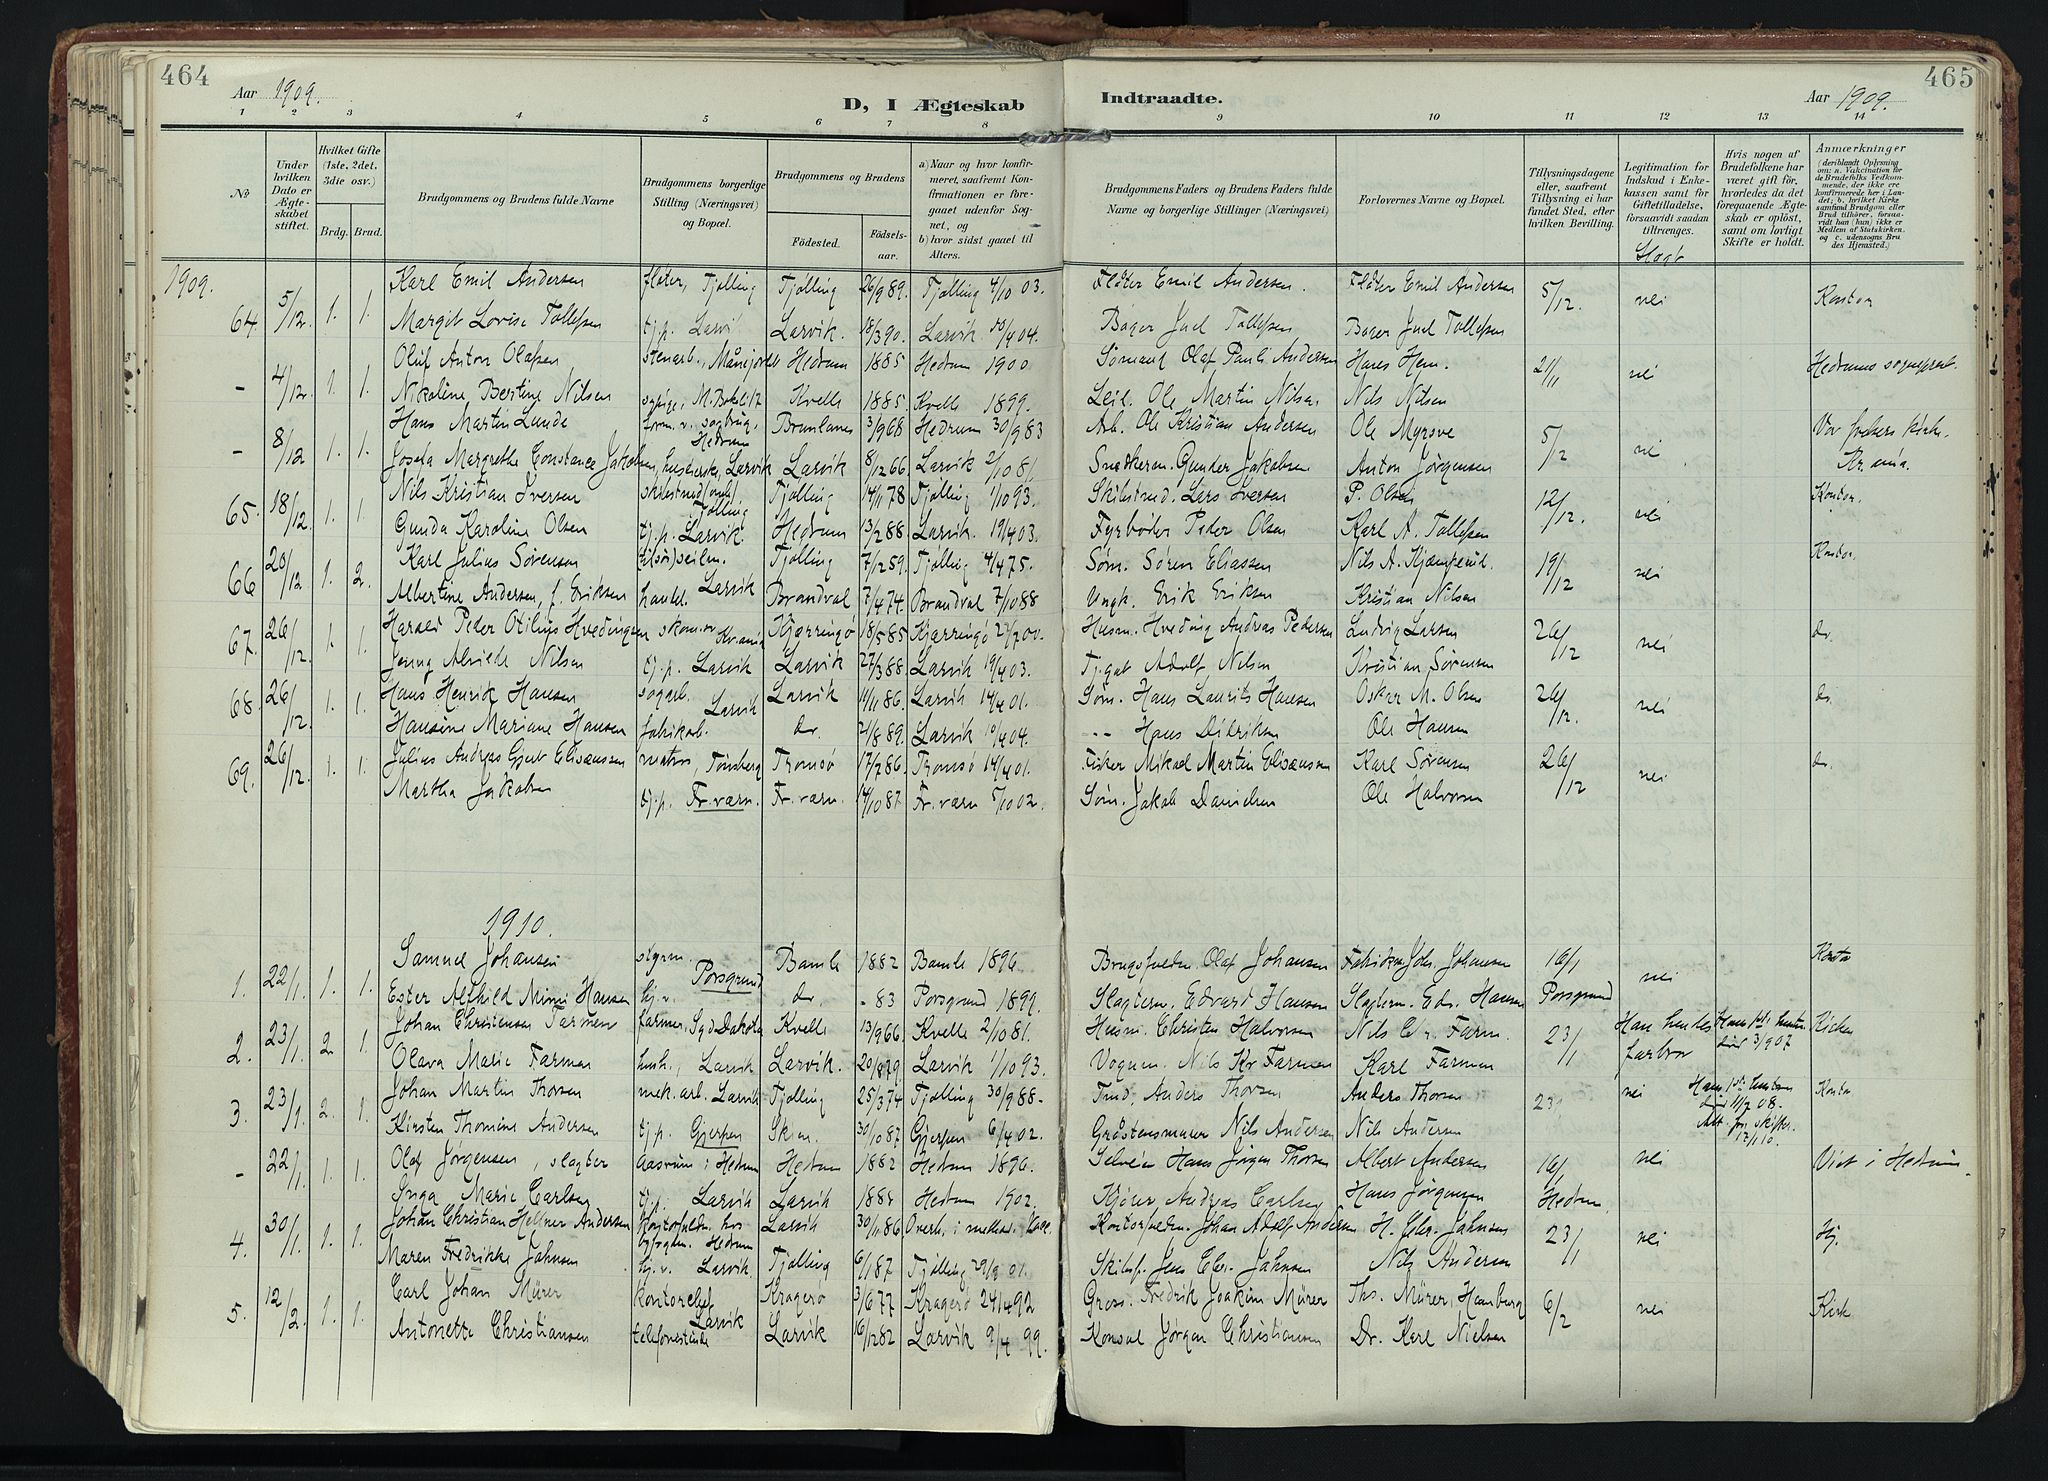 464
465
Aar 1909.
D, I Ægteskab Indtraadte.
Aar 1909.
1 2 3 4 5 6 7 8 9 10 11 12 13 14
№
Under hvilken Dato er Ægteskabet stiftet.
Hvilket Gifte (1ste, 2det, 3die osv.)
Brdg. Brud.
Brudgommens og Brudens fulde Navne
Brudgommens borgerlige Stilling (Næringsvei) og Bopæl.
Brudgommens og Brudens
Fødested. Fødselsaar.
a) Naar og hvor konfirmeret, saafremt Konfirmationen er foregaaet udenfor Sognet, og
b) hvor sidst gaaet til Alters.
Brudgommens Faders og Brudens Faders fulde Navne og borgerlige Stillinger (Næringsvei)
Forlovernes Navne og Bopæl.
Tillysningsdagene eller, saafremt Tillysning ei har fundet Sted, efter hvilken Bevilling.
Legitimation for Indskud i Enkekassen samt for Giftetilladelse, forsaavidt saadan tiltrænges.
Hvis nogen af Brudefolkene har været gift før, hvorledes da det foregaaende Ægteskab er opløst, samt om lovligt Skifte er holdt.
Anmærkninger (deriblandt Oplysning om: a. Vaccination for de Brudefolks Vedkommende, der ikke ere konfirmerede her i Landet; b. hvilket Kirkesamfund Brudgom eller Brud tilhører, forsaavidt han (hun) ikke er Medlem af Statskirken, og c. udensogns Brudes Hjemsted.)
1909.
64. 5/12. 1. 1. Karl Emil Andersen fløter, Tjølling Tjølling 26/9 89. Tjølling 4/10 03. Fløter Emil Andersen. Fløter Emil Andersen 5/12. nei Kontor
Margit Lovise Tollefsen tj.p. Larvik Larvik. 18/3 90. Larvik 10/4 04. Bager Juel Tollefsen Bager Juel Tollefsen
- 4/12. 1. 1. Oluf Anton Olafsen stenarb., Hedrum 1885 Hedrum 1900. Sømand Olaf Paul Andersen Hans Hem. 21/11 nei Hedrums sogneprest.
Nikoline Bertine Nilsen Kvelle 1885. Kvelle 1899. Leil. Ole Martin Nilsen Nils Nilsen
- 8/12 1. 1. Hans Martin Lunde form. v. sagbrug, Hedrum Brunlanes 3/9 68 Hedrum 30/9 83 Arb. Ole Kristian Andersen Ole Myrsve 5/12 nei Vor frelsers kirke Kr.ania.
Josefa Margrethe Constance Jakobsen, Larvik Larvik 8/12 66. Larvik 2/10 81. Snedkerm. Gunder Jakobsen Anton Jørgensen
65. 18/12. 1. 1. Nils Kristian Iversen Tjølling Tjølling 14/11 78 Tjølling 1/10 93. Skibstmd. Lars Iversen P. Olsen 12/12. nei Kontor.
Gunda Karoline Olsen tj.p. Larvik. Hedrum 13/2 88. Larvik. 19/4 03. Fyrbøder Peder Olsen Karl A. Tollefsen
66 20/12 1. 2. Karl Julius Sørensen Tjølling 7/12 59. Tjølling 4/4 75. Søm. Søren Eliassen Nils A. Kjæmperud. 19/12 nei Kontor
Albertine Andersen, f. Eriksen handel. Larvik Brandval 7/4 74. Brandval 7/10 88 Erik Eriksen Kristian Nilsen
67. 26/12. 1. 1. Harald Peder Otilius Hvedingsen skom.sv Kr.ania Kjærringø 18/5 85 Kjærringø 27/7 00. Husm. Hveding Andreas Pedersen Ludvig Larsen 26/12 nei do.
Jenny Alvilde Nilsen tj.p. Larvik Larvik 27/3 88. Larvik 19/4 03. Adolf Nilsen Kristian Sørensen
68. 26/12. 1. 1. Hans Henrik Hansen sagarb. Larvik Larvik 11/11 86. Larvik 14/4 01. Søm. Hans Laurits Hansen Oskar M. Olsen 26/12. nei do.
Hansine Mariane Hansen fabrikarb. do. 21/8 89. Larvik 10/4 04. -- Hans Didriksen Ole Hansen
69. 26/12 1. 1. Julius Andreas Gjert Elisæussen matros, Tønsberg Tromsø 17/7 86. Tromsø 14/4 01. Fisker Mikael Martin Elisæussen Karl Sørensen 26/12 nei do.
Martha Jakobsen tj.p. Fr.værn. Fr.værn. 14/10 87. Fr.værn 5/10 02. Søm. Jakob Danielsen Ole Halvorsen
1910.
1. 22/1. 1. 1. Samuel Johansen styrm. Porsgrund Bamle 1882 Bamle 1896 Olaf Johansen Johs. Johansen 16/1 Porsgrund nei Kontor
Ester Alfhild Mimi Hansen hj.v. do - 83 Porsgrund 1899. Slagterm. Edvard Hansen Slagterm. Edv. Hansen
2. 23/1. 2. 1. Johan Christensen Farmen farmer, Syd Dakota Kvelle 13/9 66. Kvelle 2/10 81. Husm. Christen Halvorsen Nils Chr. Farmen 23/1 Han hendes farbror Hans 1ste hustru død 3/9 07 Kirken
Olava Marie Farmen hush., Larvik Larvik. 20/8 79. Larvik 1/10 93. Vognm. Nils Kr. Farmen Karl Farmen
3. 23/1. 2. 1. Johan Martin Thorsen mek.arb. Larvik Tjølling 25/3 74 Tjølling 30/9 88. Anders Thorsen Anders Thorsen 23/1 nei Hans 1ste hustru død 11/7 08. Att. for skifte. 12/1 10. Kontor
Kirsten Thomine Andersen tj.p. Gjerpen Skien. 30/10 87 Gjerpen 6/4 02. Nils Andersen Nils Andersen
- 22/1. 1. 1. Olaf Jørgensen, slagter Aasrum i Hedrum Hedrum 1882 Hedrum 1896. Selveier Hans Jørgen Thorsen Albert Andersen 16/1 Hedrum. nei Viet i Hedrum.
Inga Marie Carlsen tj.p. Larvik Larvik 1884 Hedrum 1902. Andreas Carlsen Hans Jørgensen
4. 30/1. 1. 1. Johan Christian Hellner Andersen Hedrum Larvik 30/11 86 Kontorfuldm. Johan Adolf Andersen H. Chr. Jahnsen 23/1 nei Hj.
Maren Fredrikke Jahnsen hj.v. Larvik. Tjølling 6/1 87 Tjølling 29/9 01. Skibsf. Jens Chr. Jahnsen Nils Andersen
5. 12/2. 1. 1. Carl Johan Mürer kontorchef Larvik Kragerø 3/6 77 Kragerø 24/4 92 Gross. Fredrik Joakim Mürer Ths. Mürer, Hamburg 6/2 nei Kirk
Antonette Christiansen Larvik 16/12 82 Larvik 9/4 99. Konsul Jørgen Christiansen Dr. Karl Nielsen